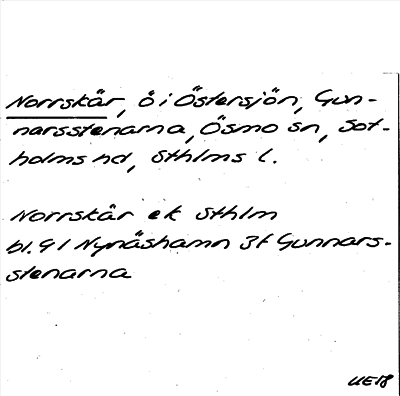 Norrskär, ö i Östersjön, Gun-
narsstenarna, Ösmo sn, Sot-
holms hd, Sthlms l.
Norrskär ek Sthlm
bl. 9 I Nynäshamn 3f Gunnars-
stenarna